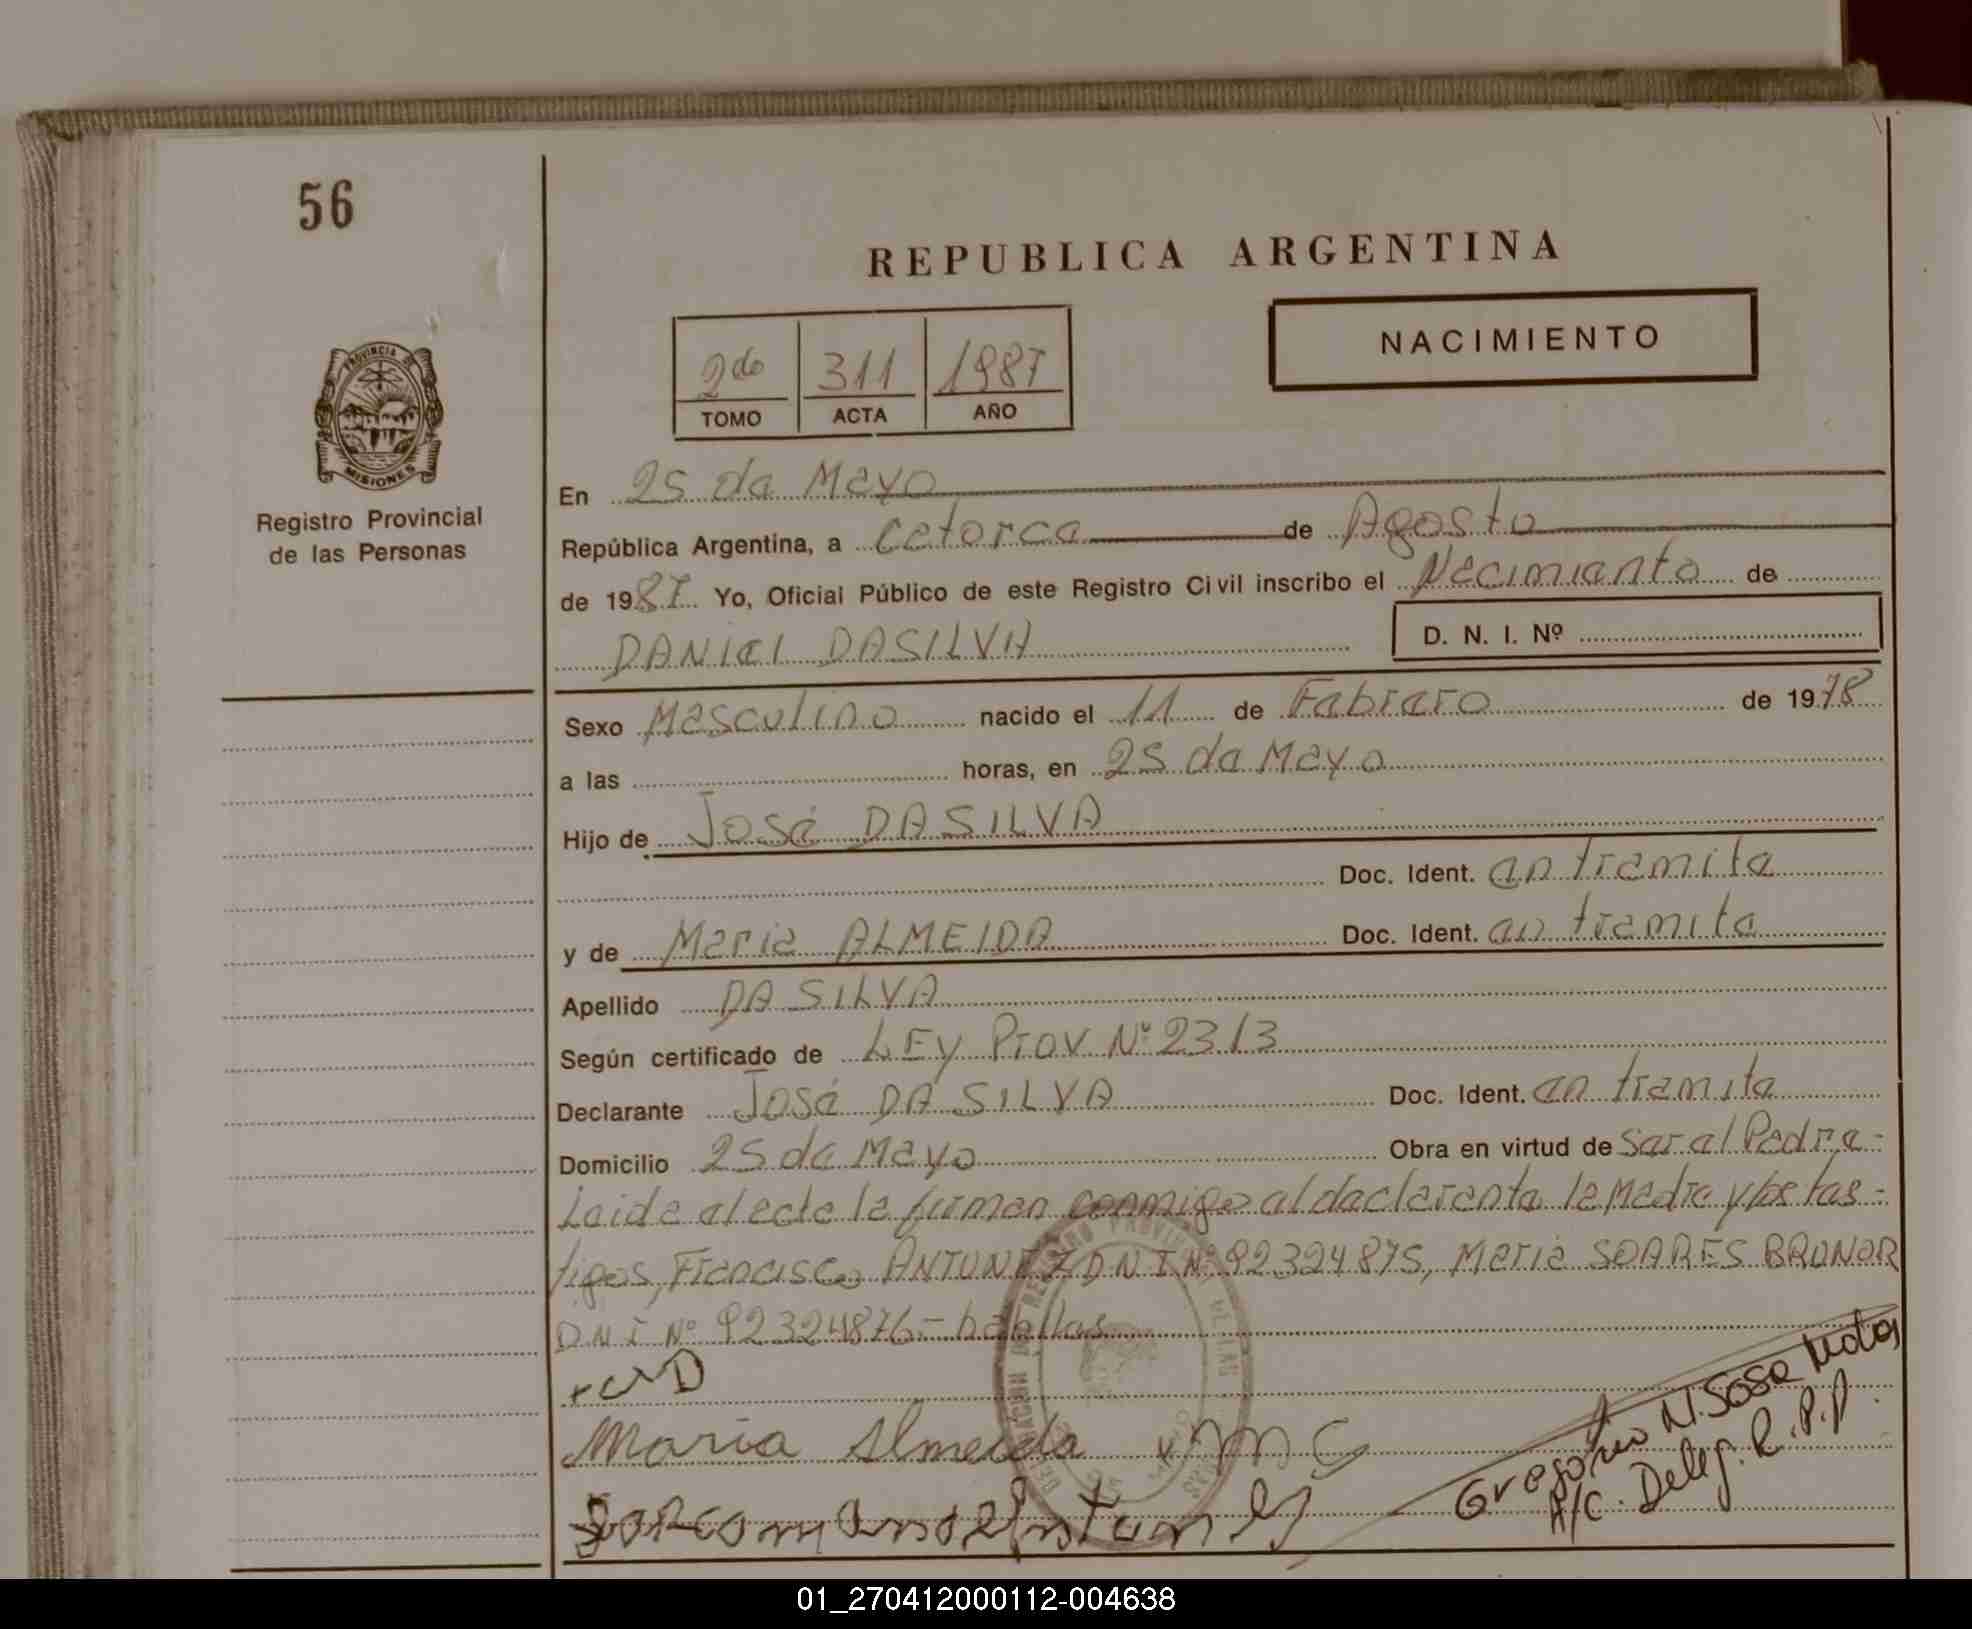 56
REPUBLICA ARGENTINA
NACIMIENTO
2do 311 1987
TOMO ACTA AÑO
PROVINCIA DE
MISIONES
Registro Provincial
de las Personas
En 25 de Mayo
República Argentina, a catorce de Agosto
de 1987. Yo, Oficial Público de este Registro Civil inscribo el Nacimiento de
DANIEL DASILVA D. N. I. Nº
Sexo Masculino nacido el 11 de Febrero de 1978
a las horas, en 25 de Mayo
Hijo de José DASILVA
Doc. Ident. en tramite
y de Maria ALMEIDA Doc. Ident. en tramite
Apellido DA SILVA
Según certificado de LEY Prov. Nº 2313
Declarante José DA SILVA Doc. Ident. en tramite
Domicilio 25 de Mayo Obra en virtud de ser el Padre.-
Leida el acta la firman conmigo el declarante la Madre y los tes-
tigos, Francisco ANTUNEZ D N I Nº 92324875, Maria SOARES BRUNOR
D.N.I. Nº 92324876.-
Maria Almeida
Gregorio N. Sosa
A/C. Deleg. R.P.P.
01_270412000112-004638